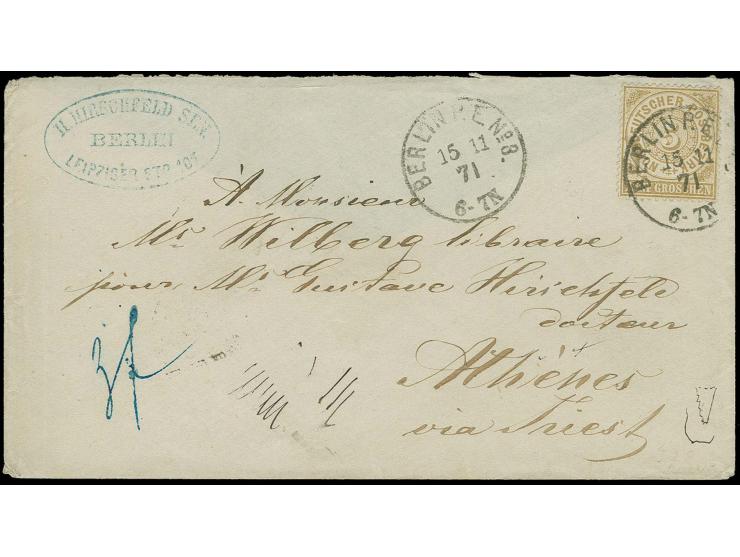 H. HIRSCHFELD SEN.
BERLIN
LEIPZIGER STR.
BERLIN P.E. No 8.
15 11
71
6-7N
BERLIN P.E.
15 11
71
6-7N
GROSCHEN
À Monsieur
Mr. Wilberg libraire
pour Mr. Gustave Hirschfeld
docteur
Athènes
via Triest